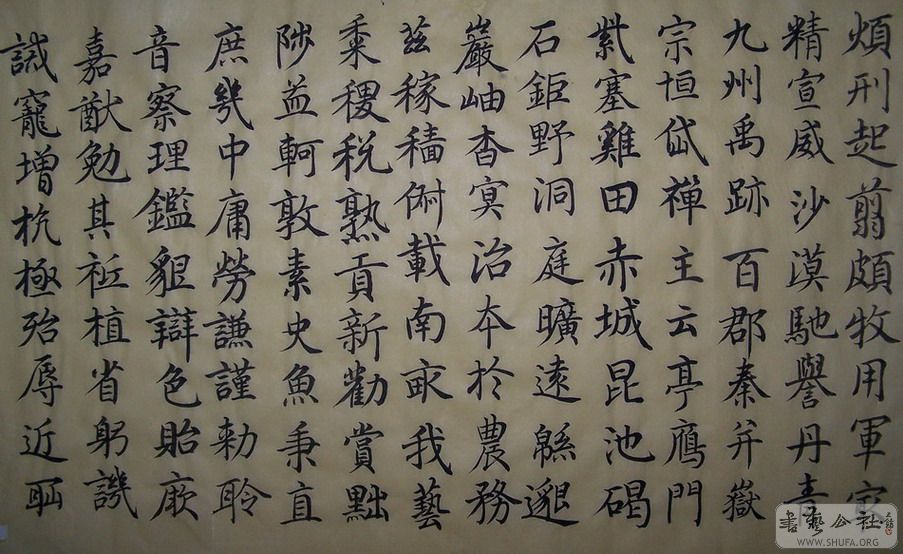 煩刑起翦頗牧用軍最
精宣威沙漠馳譽丹青
九州禹跡百郡秦并嶽
宗恒岱禪主云亭鴈門
紫塞雞田赤城昆池碣
石鉅野洞庭曠遠緜邈
巖岫杳冥治本於農務
茲稼穡俶載南畝我藝
黍稷稅熟貢新勸賞黜
陟孟軻敦素史魚秉直
庶幾中庸勞謙謹勑聆
音察理鑑貌辯色貽厥
嘉猷勉其祗植省躬譏
誡寵增抗極殆辱近恥
書藝公社
WWW.SHUFA.ORG